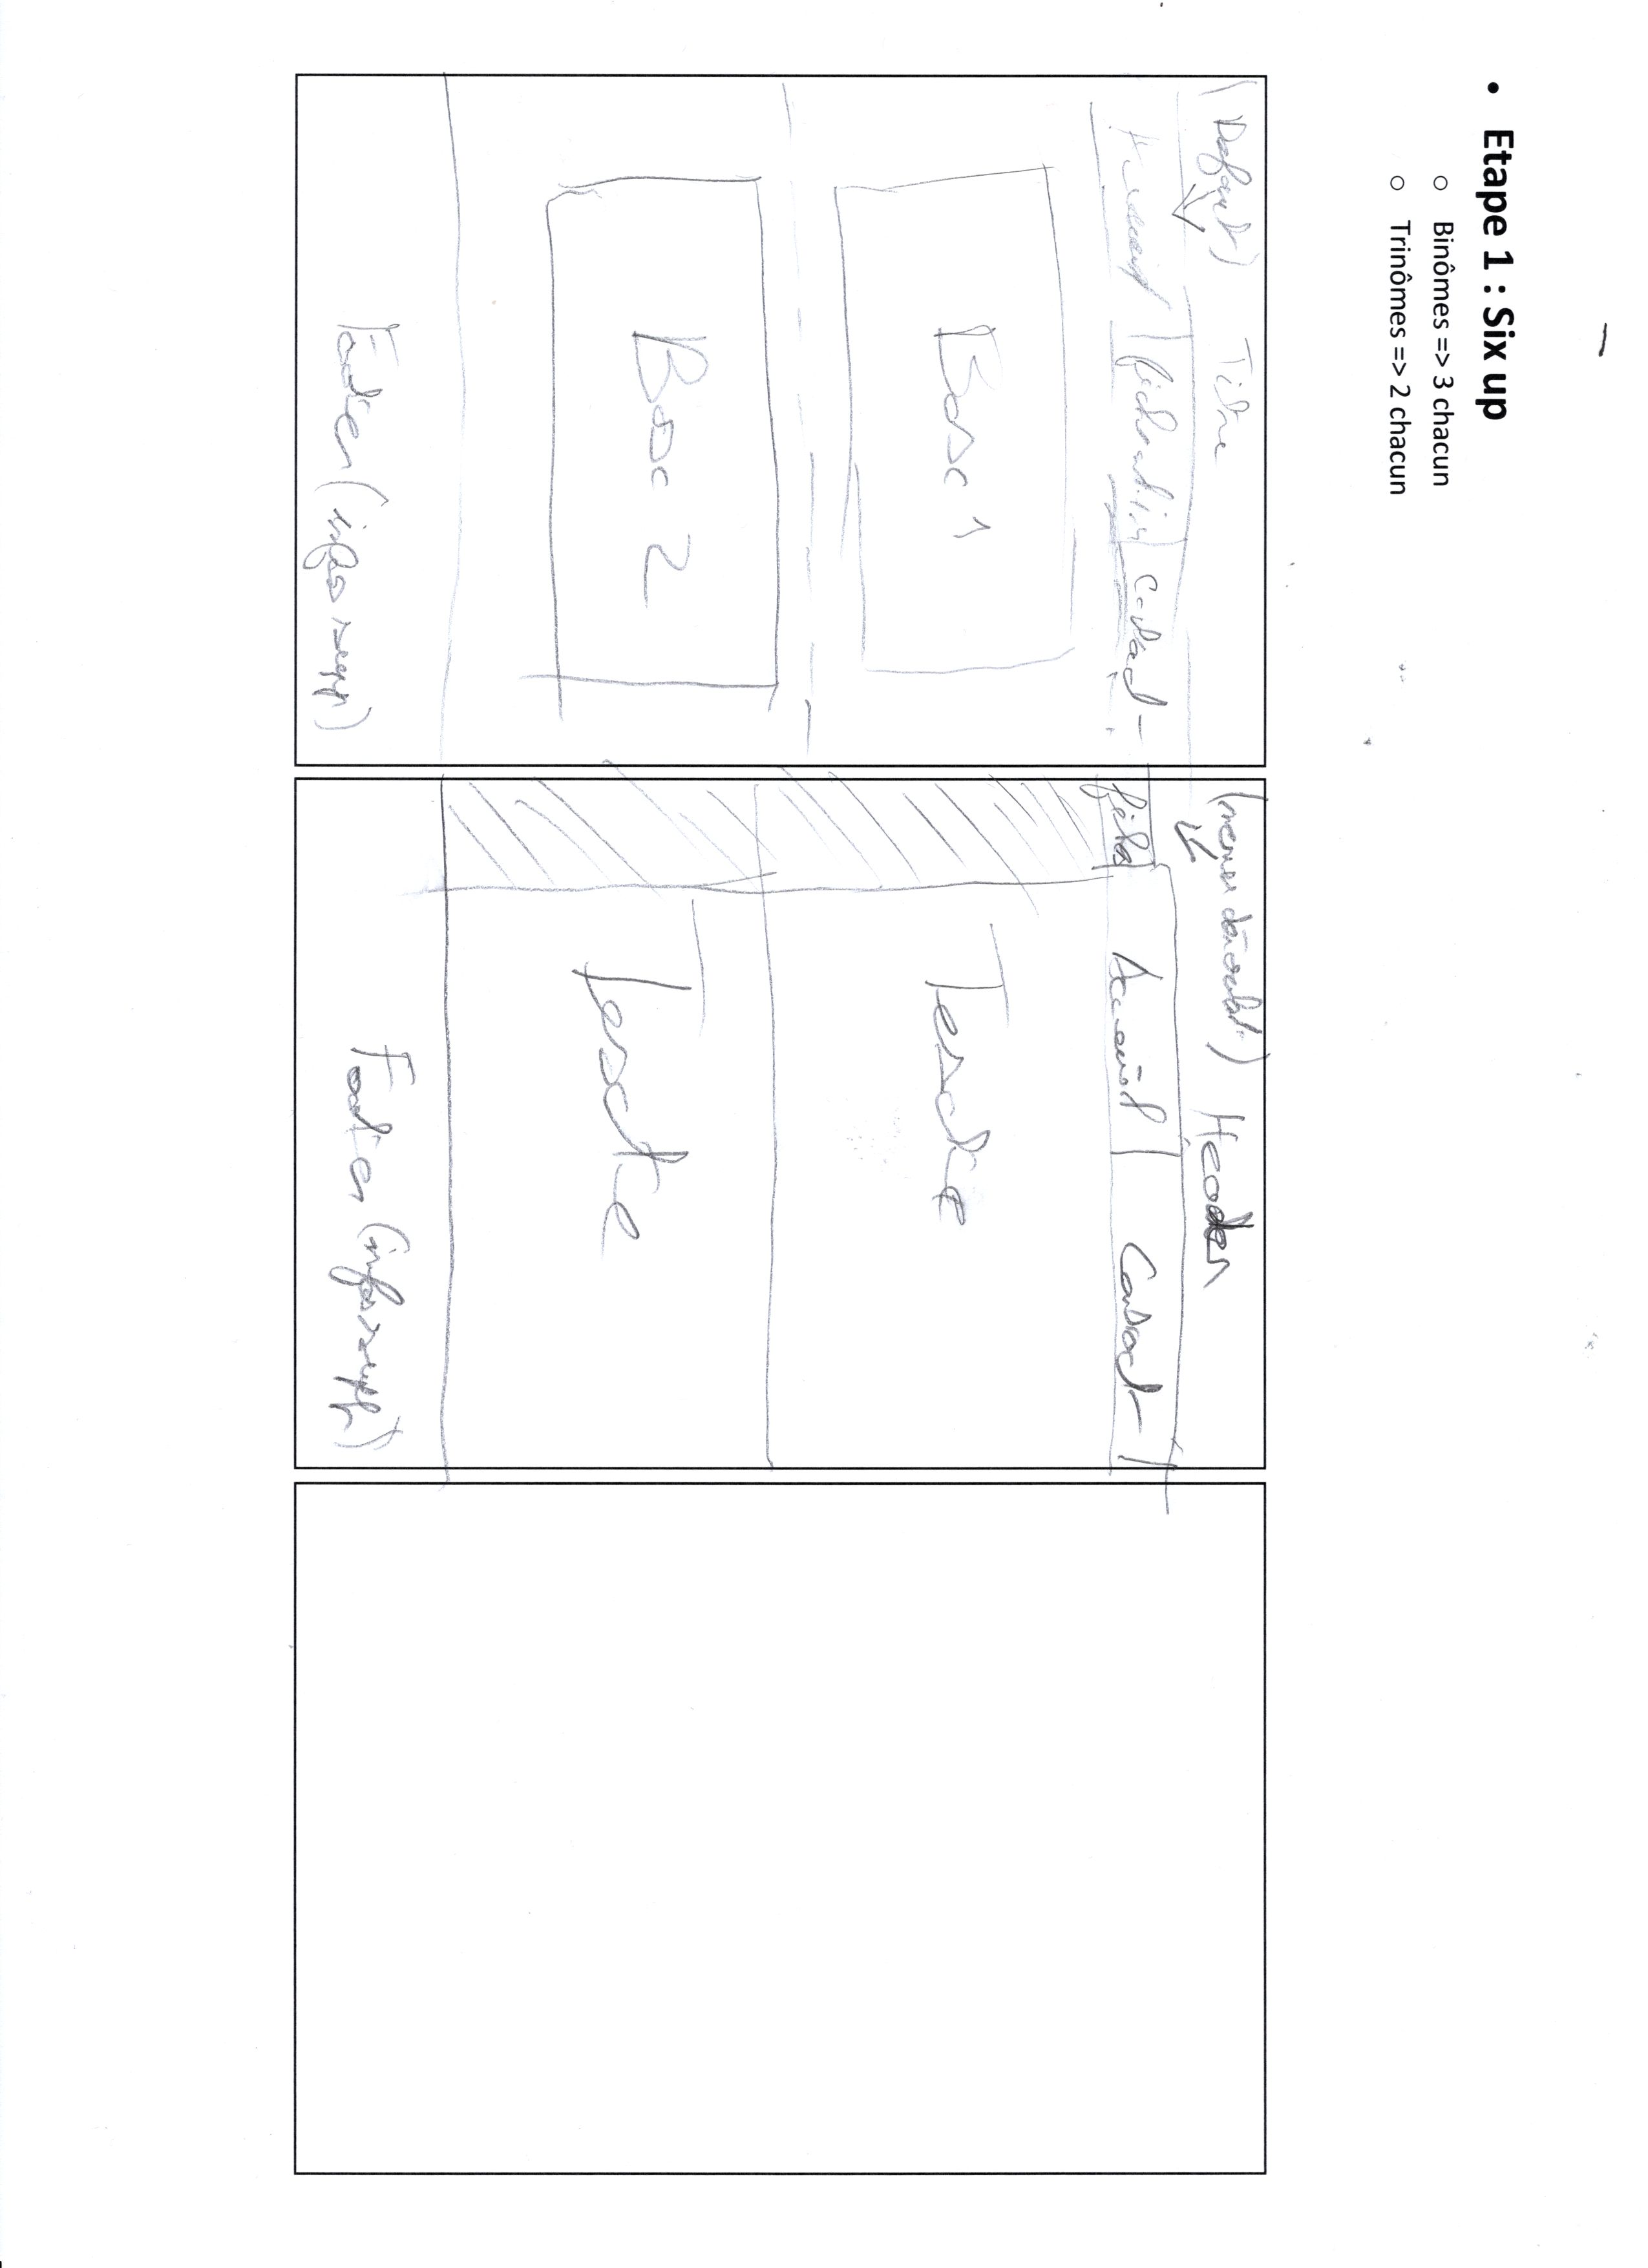 • Etape 1 : Six up
o Binômes => 3 chacun
o Trinômes => 2 chacun
(Defaut) Titre
Accueil Contact
Boxe 1
Boxe 2
Footer (infos supp)
(menu déroulant) Header
Accueil Contact
Texte
Texte
Footer (infos supp)